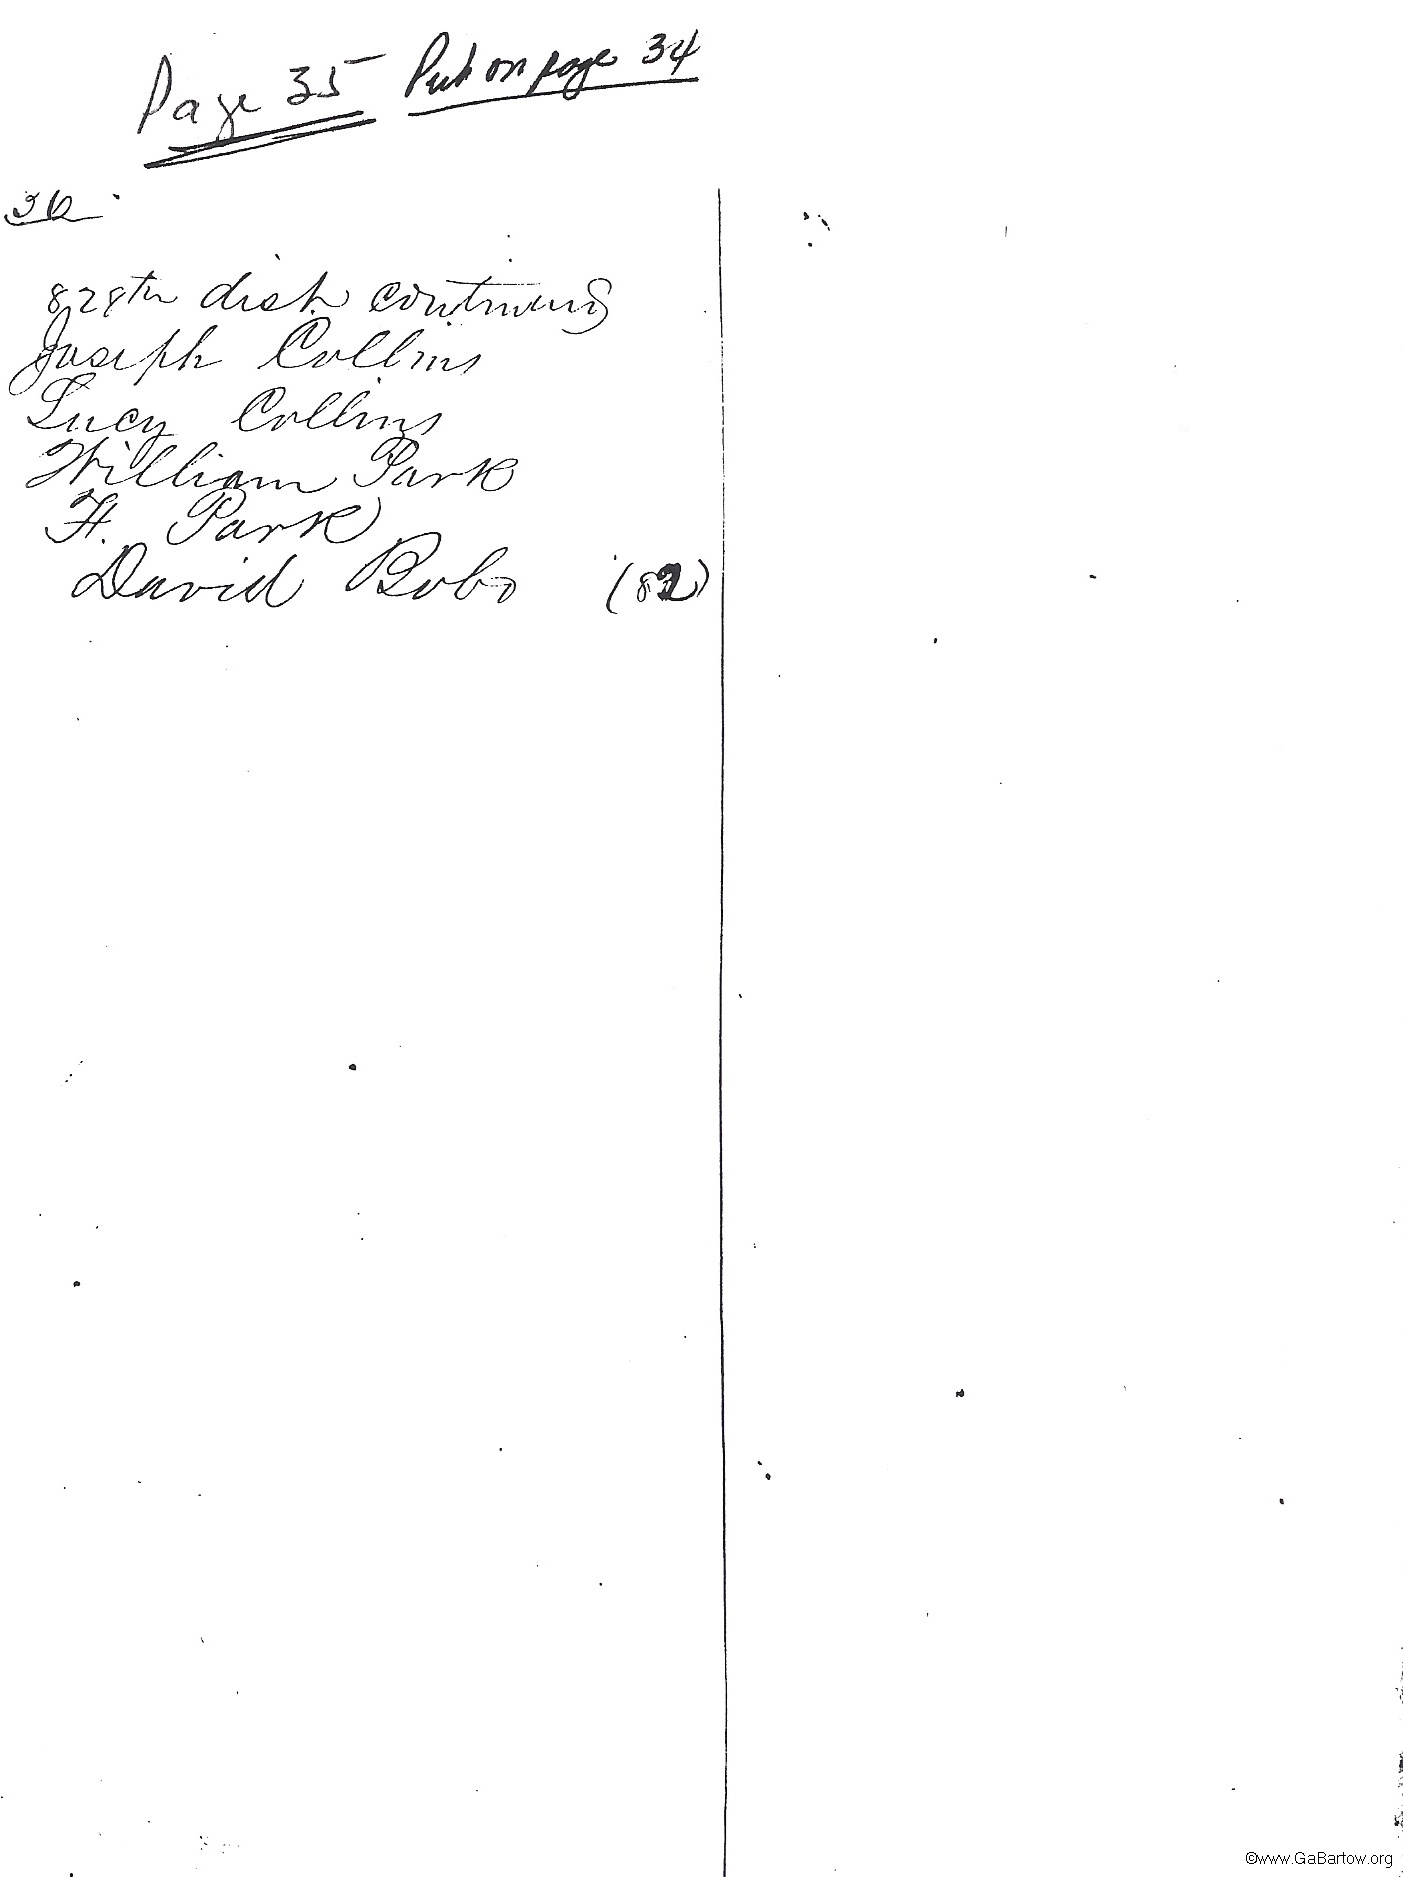 Page 35 Put on page 34
36
828th dist continued
Joseph Collins
Lucy Collins
William Park
H. Park
David Bobo (82)
©www.GaBartow.org